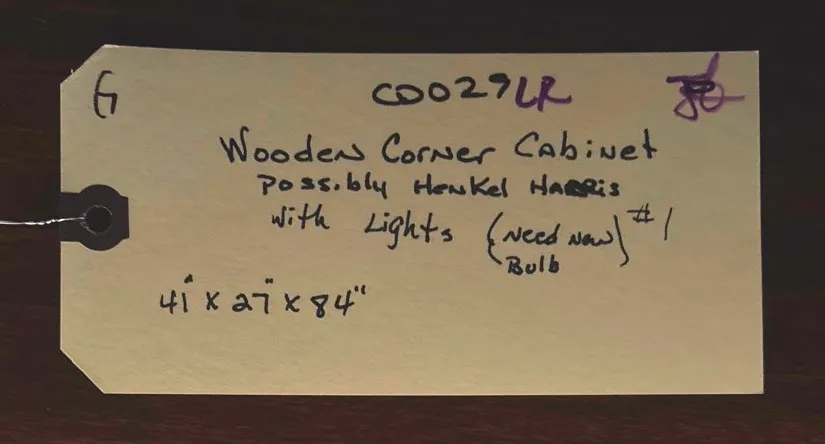 G
CO029LR
Wooden Corner Cabinet
Possibly Henkel Harris
With Lights (Need New Bulb) #1
41" x 27" x 84"